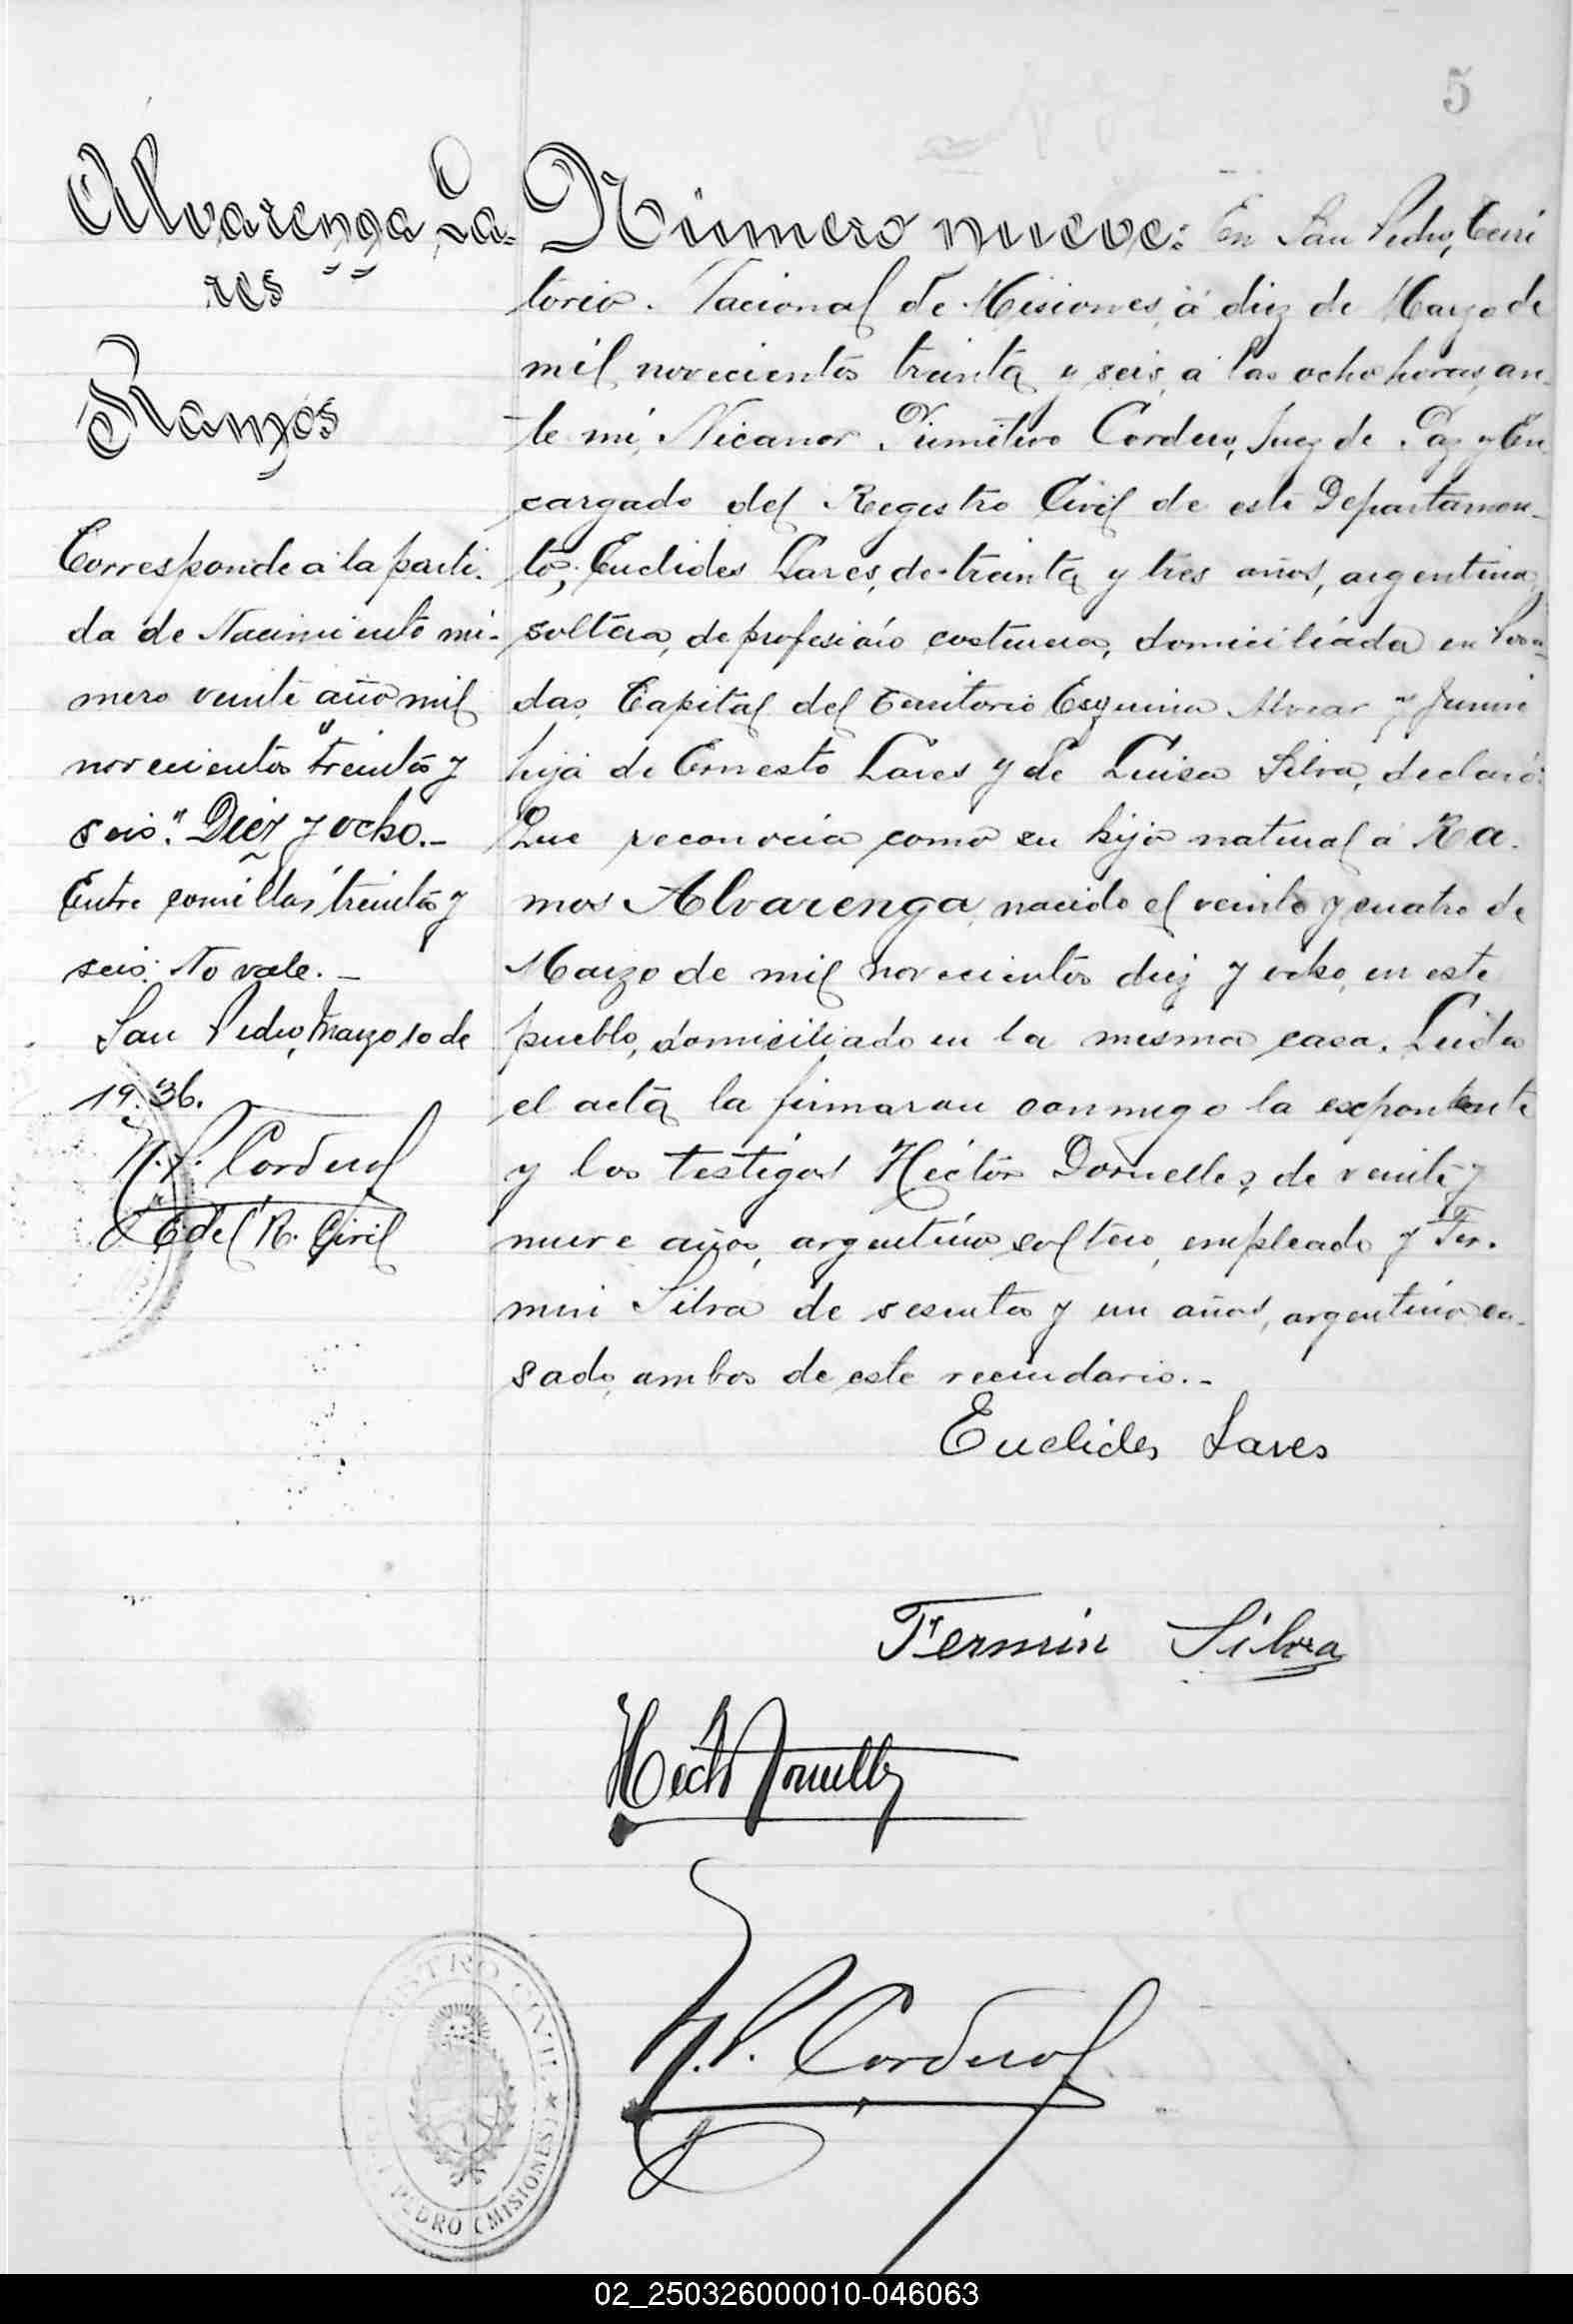 5
Alvarenga La-
res
Ramos
Corresponde a la parti-
da de Nacimiento nú-
mero veinte año mil
novecientos "treinta y
seis". Diez y ocho.-
Entre comillas treinta y
seis: No vale.-
San Pedro, Marzo 10 de
1936.
N. P. Cordero
E. del R. Civil
Número nueve: En San Pedro, Terri
torio. Nacional de Misiones, á diez de Mayo de
mil novecientos treinta y seis, á las ocho horas, an-
te mi, Nicanor Primitivo Cordero, Juez de Paz y En
cargado del Registro Civil de este Departamen-
to; Euclides Lares, de treinta y tres años, argentina,
soltera, de profesión costurera, domiciliada en Posa-
das, Capital del Territorio Esquina Alvear y Junin
hija de Ernesto Lares y de Luisa Silva, declaró:
Que reconocia como su hijo natural á Ra-
mos Alvarenga, nacido el veinte y cuatro de
Marzo de mil novecientos diez y ocho, en este
pueblo, domiciliado en la misma casa. Leida
el acta la firmaron conmigo la exponente
y los testigos Héctor Dornelles, de veinte y
nueve años, argentino soltero, empleado y Fer-
min Silva de sesenta y un años, argentino, ca-
sado, ambos de este vecindario.-
Euclides Lares
Fermin Silva
Hector Dornelles
N. P. Cordero
REGISTRO CIVIL ★
PEDRO (MISIONES)
02_250326000010-046063